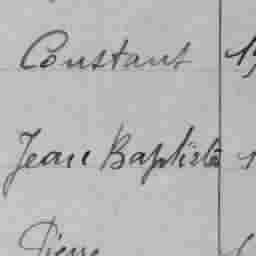 Constant
Jean Baptiste
Pierre